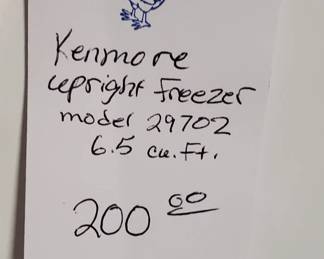 Kenmore
upright freezer
model 29702
6.5 cu.ft.
200 00